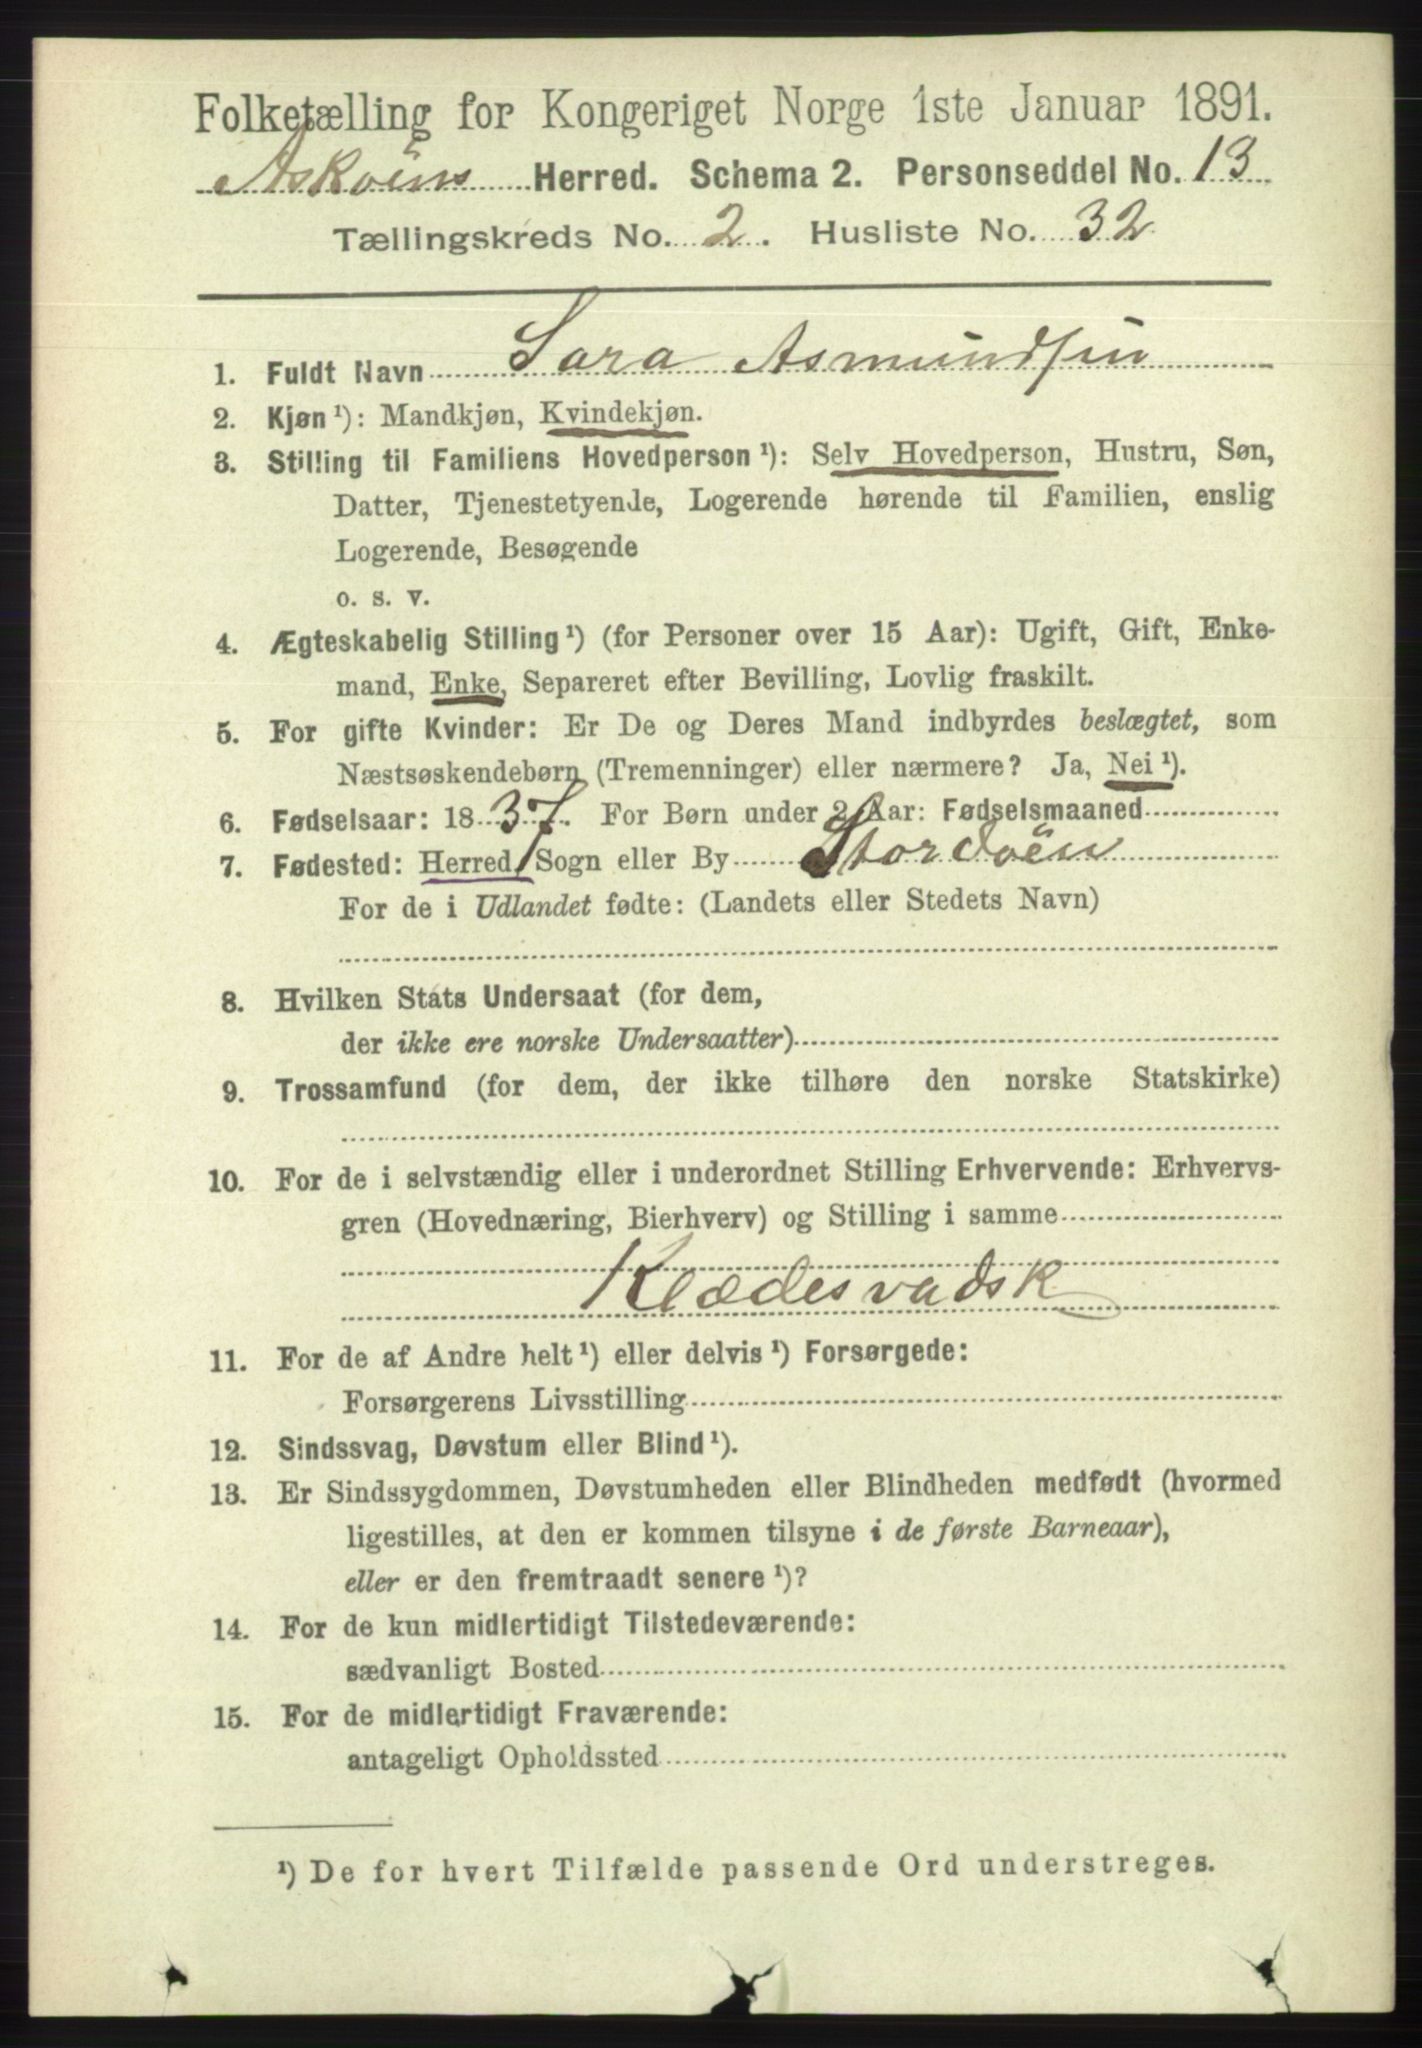 Folketælling for Kongeriget Norge 1ste Januar 1891.
Askøens Herred. Schema 2. Personseddel No. 13
Tællingskreds No. 2. Husliste No. 32
1. Fuldt Navn Sara Asmundsen
2. Kjøn ¹): Mandkjøn, Kvindekjøn.
3. Stilling til Familiens Hovedperson ¹): Selv Hovedperson, Hustru, Søn,
Datter, Tjenestetyende, Logerende hørende til Familien, enslig
Logerende, Besøgende
o. s. v.
4. Ægteskabelig Stilling ¹) (for Personer over 15 Aar): Ugift, Gift, Enke-
mand, Enke, Separeret efter Bevilling, Lovlig fraskilt.
5. For gifte Kvinder: Er De og Deres Mand indbyrdes beslægtet, som
Næstsøskendebørn (Tremenninger) eller nærmere? Ja, Nei ¹).
6. Fødselsaar: 1837. For Børn under 2 Aar: Fødselsmaaned
7. Fødested: Herred, Sogn eller By Stordøen
For de i Udlandet fødte: (Landets eller Stedets Navn)
8. Hvilken Stats Undersaat (for dem,
der ikke ere norske Undersaatter)
9. Trossamfund (for dem, der ikke tilhøre den norske Statskirke)
10. For de i selvstændig eller i underordnet Stilling Erhvervende: Erhvervs-
gren (Hovednæring, Bierhverv) og Stilling i samme
Klædesvadsk
11. For de af Andre helt ¹) eller delvis ¹) Forsørgede:
Forsørgerens Livsstilling
12. Sindssvag, Døvstum eller Blind ¹).
13. Er Sindssygdommen, Døvstumheden eller Blindheden medfødt (hvormed
ligestilles, at den er kommen tilsyne i de første Barneaar),
eller er den fremtraadt senere ¹)?
14. For de kun midlertidigt Tilstedeværende:
sædvanligt Bosted
15. For de midlertidigt Fraværende:
antageligt Opholdssted
¹) De for hvert Tilfælde passende Ord understreges.